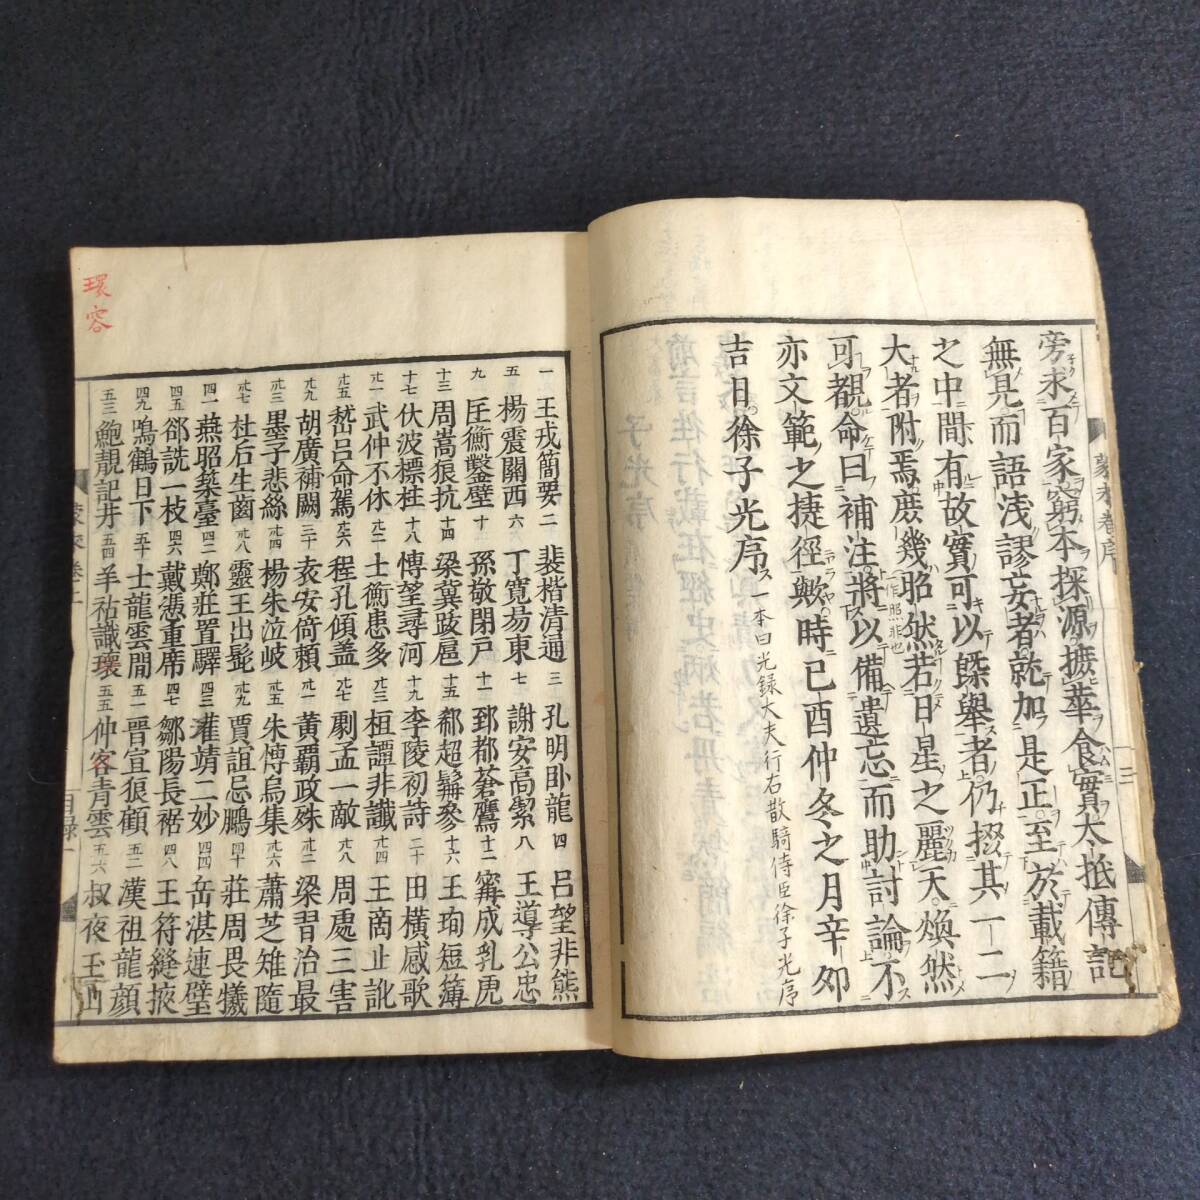 旁求百家窮本探源摭華食實大抵傳記
無見而語淺謬妄者就加是正至於載籍
之中間有故實可以槩舉者仍掇其一二
大者附焉庶幾昭然若日星之麗天煥然
一作照非也
可覩命曰補注將以備遺忘而助討論不
亦文範之捷徑歟時己酉仲冬之月辛卯
吉日徐子光序
一本曰光録大夫行右散騎侍臣徐子光序
環容
一 王戎簡要 二 裴楷清通 三 孔明臥龍 四 呂望非熊
五 楊震關西 六 丁寬易東 七 謝安高潔 八 王導公忠
九 匡衡鑿壁 十 孫敬閉戸 十一 郅都蒼鷹 十二 甯成乳虎
十三 周嵩狼抗 十四 梁冀跋扈 十五 郗超髯參 十六 王珣短簿
十七 伏波標柱 博望尋河 十九 李陵初詩 二十 田横感歌
廿一 武仲不休 士衡患多 廿三 桓譚非讖 廿四 王商止訛
廿五 嵇呂命駕 廿六 程孔傾蓋 廿七 劇孟一敵 廿八 周處三害
廿九 胡廣補闕 三十 袁安倚賴 卅一 黄霸政殊 卅二 梁習治最
卅三 墨子悲絲 卅四 楊朱泣岐 卅五 朱博烏集 卅六 蕭芝雉隨
卅七 杜后生齒 卅八 靈王出髭 卅九 賈誼忌鵩 四十 莊周畏犧
四一 燕昭築臺 四二 鄭莊置驛 四三 瓘靖二妙 四四 岳湛連璧
四五 郤詵一枝 四六 戴憑重席 四七 鄒陽長裾 四八 王符縫掖
四九 鳴鶴日下 五十 士龍雲間 五一 晉宣狼顧 五二 漢祖龍顏
五三 鮑靚記井 五四 羊祜識環 五五 仲容青雲 五六 叔夜玉山